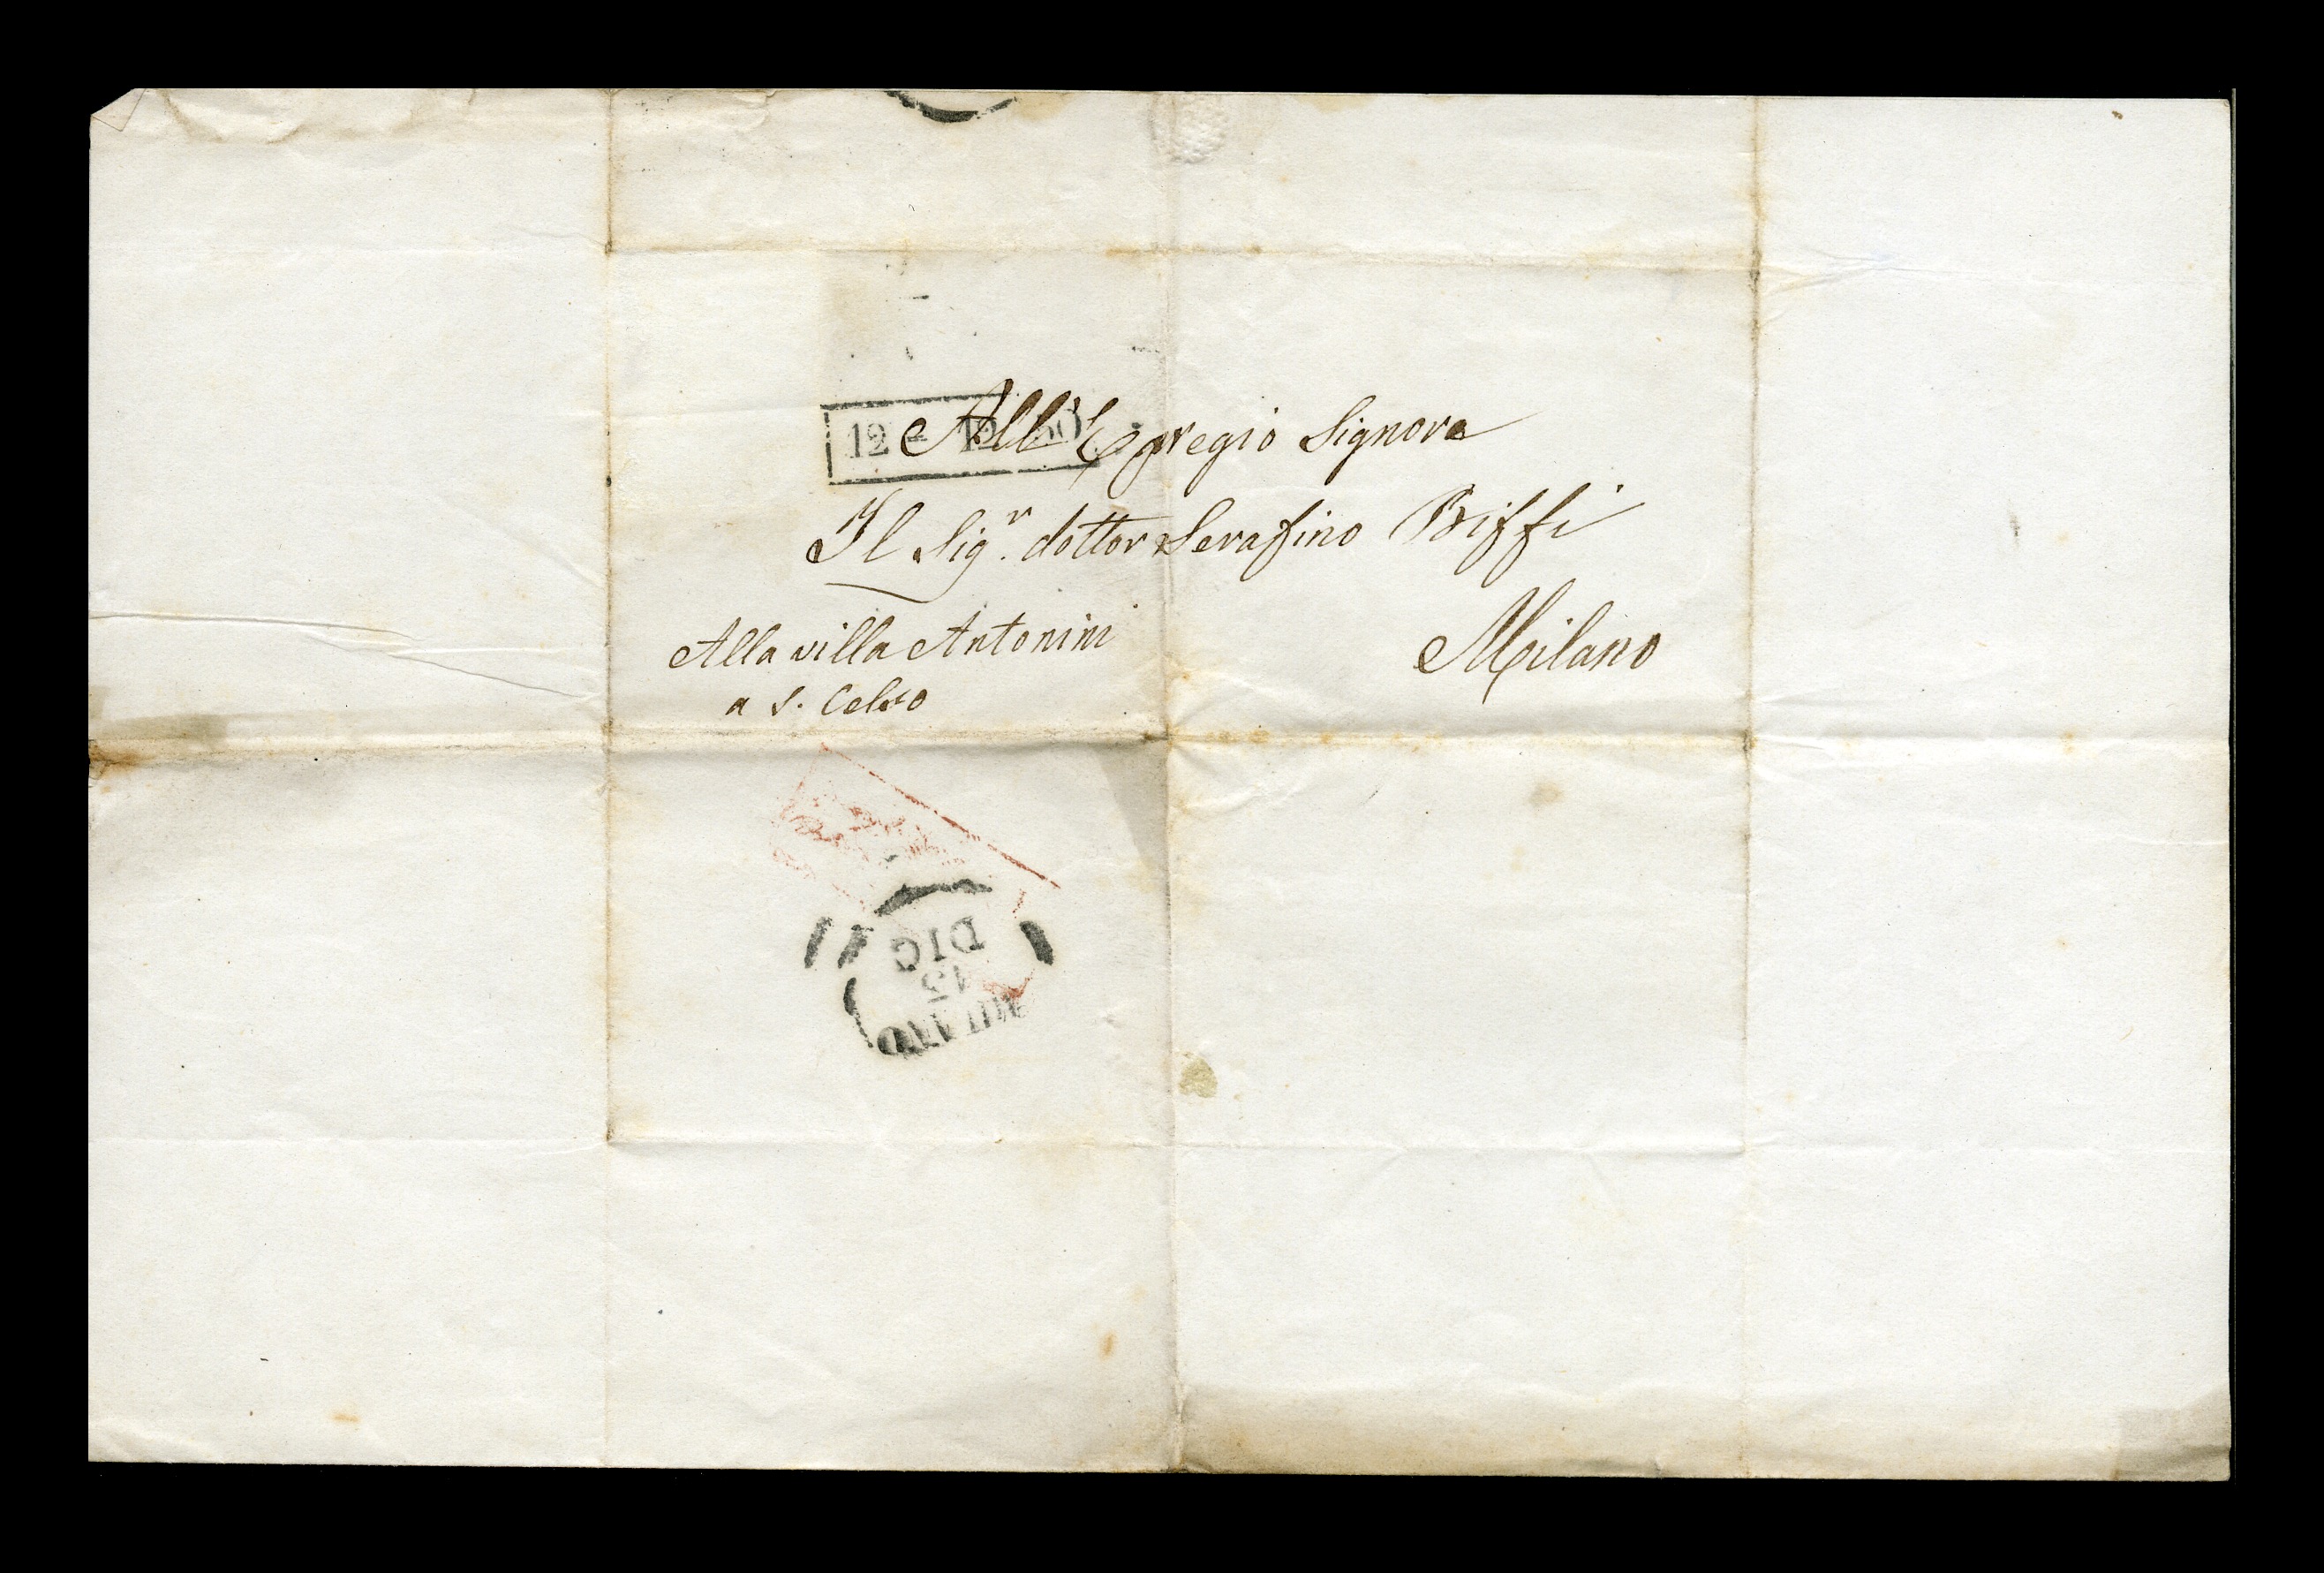 All'Egregio Signore
Il Sig.r dottor Serafino Biffi
Milano
Alla villa Antonini
a S. Celso
12
MILANO
13
DIC